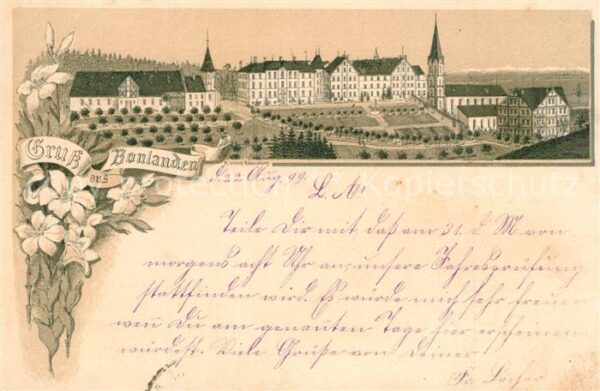 Gruß
aus
Bonlanden
d. 22. Aug. 99.
L. A.
Teile Dir mit, daß am 31. d. M. von
morgens acht Uhr an, unsere Jahresprüfung
stattfinden wird. Es würde mich sehr freuen
wen Du am genanten Tage hier erscheinen
würdest. Viele Grüße von Deiner
Fr. Locher